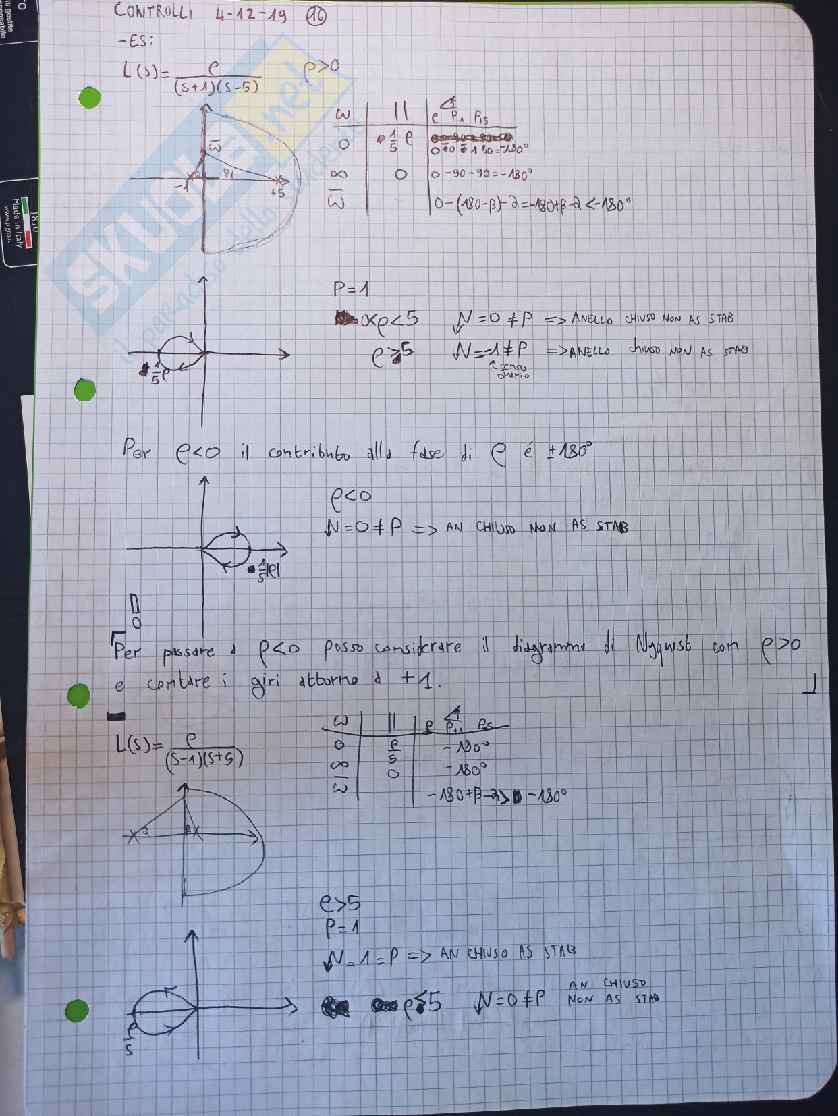 CONTROLLI 4-12-19 10
-ES:
L(s)= ρ / (s+1)(s-5) ρ>0
ω || ρ P₁ P₁₅
0 1/5 ρ
0-0-180=-180°
∞ 0 0-90-90=-180°
ω̄ 0-(180-β)-α=-180+β-α<-180°
ω̄
-1 +5
P=1
ρ<5 N=0≠P => ANELLO CHIUSO NON AS STAB
ρ>5 N=-1≠P => ANELLO CHIUSO NON AS STAB
1/5 ρ
Per ρ<0 il contributo alla fase di ρ é ±180°
ρ<0
N=0≠P => AN CHIUSO NON AS STAB
1/5|ρ|
Per passare a ρ<0 posso considerare il diagramma di Nyquist con ρ>0
e contare i giri attorno a +1.
L(s)= ρ / (s-1)(s+5)
ω || ρ
0 ρ/5 -180°
∞ 0 -180°
ω̄ -180+β-α> -180°
ρ>5
P=1
N=1=P => AN CHIUSO AS STAB
ρ<5 N=0≠P AN CHIUSO NON AS STAB
ρ/5
SKUOLA.net
Made in Italy